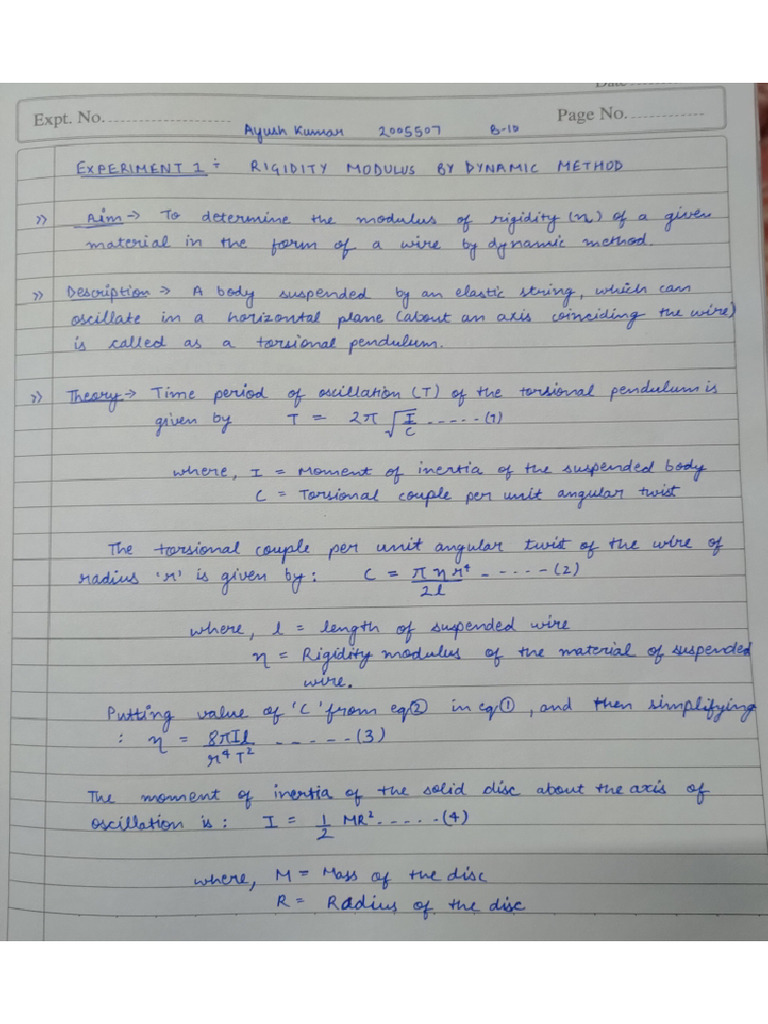 Date
Expt. No.
Page No.
Ayush Kumar 2005507 B-10
EXPERIMENT 1 :- RIGIDITY MODULUS BY DYNAMIC METHOD
» Aim → To determine the modulus of rigidity (η) of a given
material in the form of a wire by dynamic method.
» Description → A body suspended by an elastic string, which can
oscillate in a horizontal plane (about an axis coinciding the wire)
is called as a torsional pendulum.
» Theory → Time period of oscillation (T) of the torsional pendulum is
given by T = 2π √(I/C) ..... (1)
where, I = Moment of inertia of the suspended body
C = Torsional couple per unit angular twist
The torsional couple per unit angular twist of the wire of
radius 'r' is given by: C = πηr⁴/2l ------ (2)
where, l = length of suspended wire
η = Rigidity modulus of the material of suspended
wire.
Putting value of 'C' from eq② in eq①, and then simplifying
: η = 8πIl/r⁴T² ------ (3)
The moment of inertia of the solid disc about the axis of
oscillation is: I = 1/2 MR² ...... (4)
where, M = Mass of the disc
R = Radius of the disc